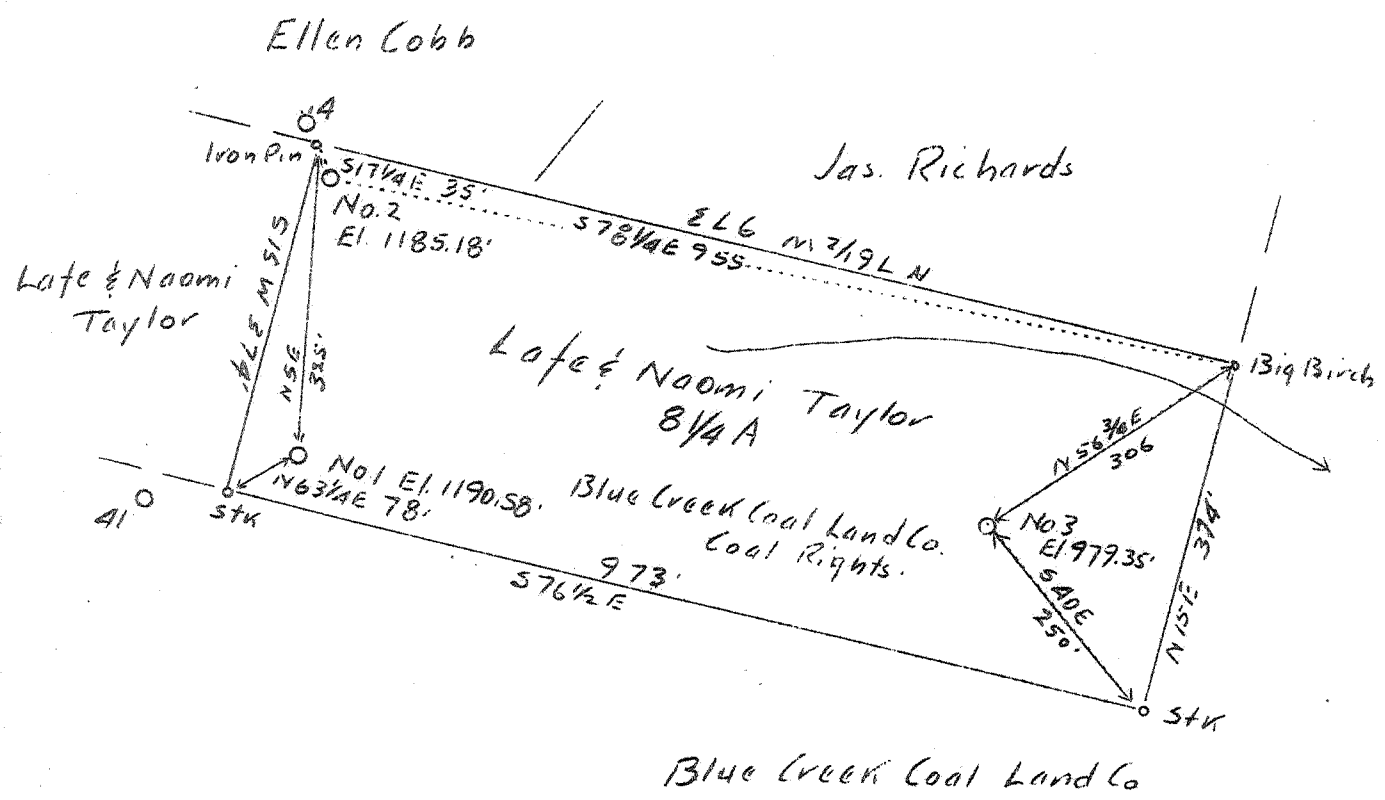 Ellen Cobb
4
Iron Pin
Jas. Richards
S17¼E 35'
No. 2
El. 1185.18'
S78¼E 955
N 76½ W 973
Lafe & Naomi
Taylor
S15W 374'
N5E
385'
Lafe & Naomi Taylor
8¼ A
Big Birch
N56¾E
306
No.1 El. 1190.58'
N63¼E 78'
41
Stk
Blue Creek Coal Land Co.
Coal Rights.
No.3
El 979.35'
S40E
250'
N15E 374'
973'
S76½E
Stk
Blue Creek Coal Land Co